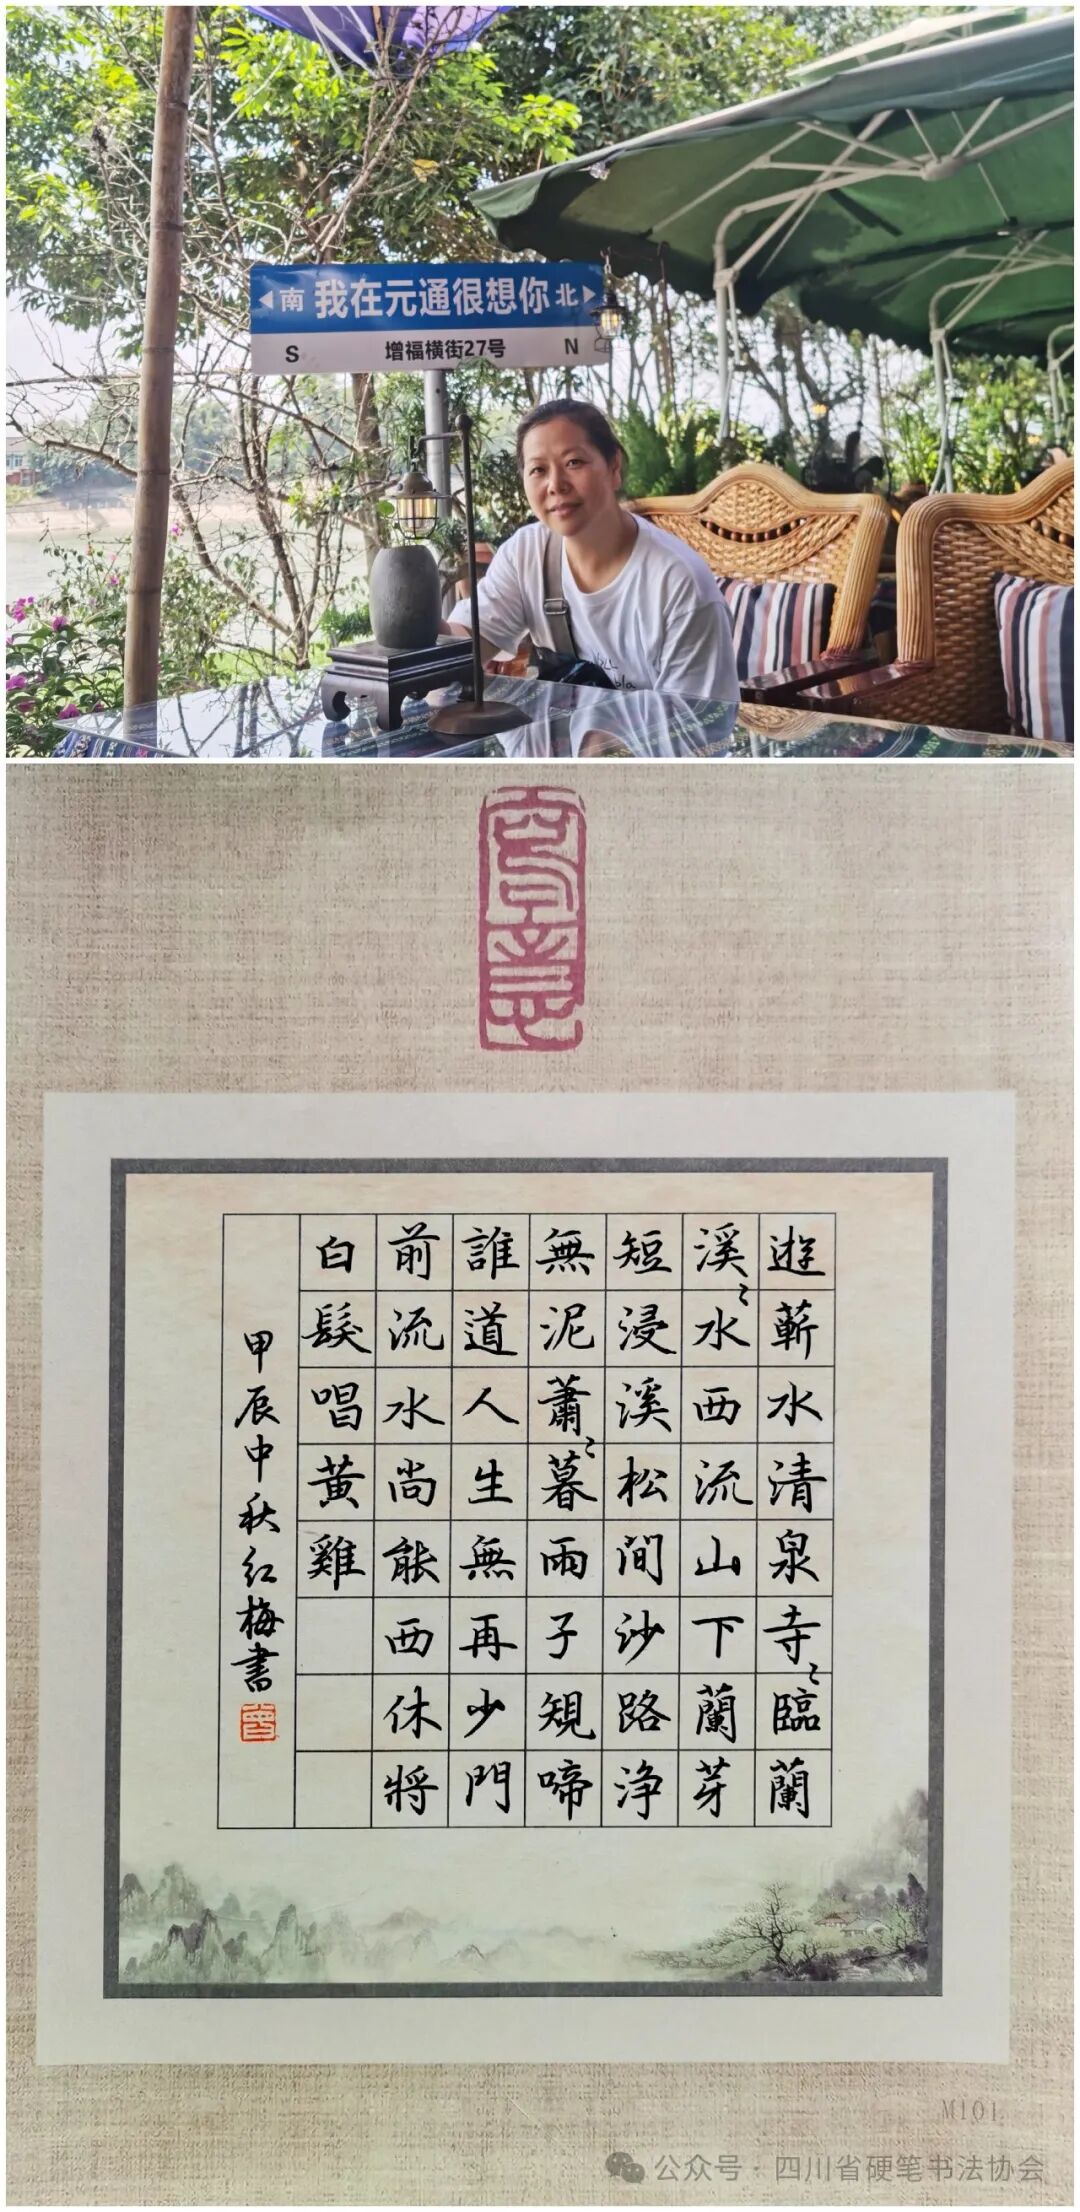 ◀南 我在元通很想你 北▶
S 增福横街27号 N
遊蘄水清泉寺〻臨蘭
溪〻水西流山下蘭芽
短浸溪松間沙路净
無泥蕭〻暮雨子䂓啼
誰道人生無再少門
前流水尚能西休將
白髮唱黃雞
甲辰中秋红梅書
M101
公众号·四川省硬笔书法协会